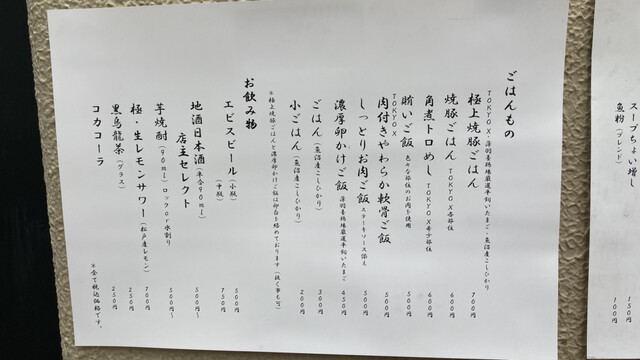 スープちょい増し 150円
魚粉(ブレンド) 100円
ごはんもの
極上焼豚ごはん 700円
TOKYO X・深羽養鶏場厳選平飼いたまご・魚沼産こしひかり
焼豚ごはん TOKYO X各部位 600円
角煮トロめし TOKYO X希少部位 600円
賄いご飯 色々な部位のお肉を使用 500円
TOKYO X
肉付きやわらか軟骨ご飯 500円
しっとりお肉ご飯 ステーキソース添え 500円
濃厚卵かけご飯 深羽養鶏場厳選平飼いたまご 450円
ごはん(魚沼産こしひかり) 300円
小ごはん(魚沼産こしひかり) 200円
*極上焼豚ごはんと濃厚卵かけご飯は卵白を絡めております(抜く事も可)
お飲み物
エビスビール(小瓶) 500円
(中瓶) 750円
地酒日本酒(半合90ml) 500円〜
店主セレクト
芋焼酎(90ml)ロックor水割り 500円〜
極・生レモンサワー(松戸産レモン) 700円
黒烏龍茶(グラス) 250円
コカコーラ 250円
*全て税込価格です。